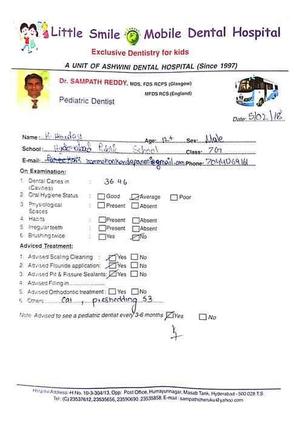 Little Smile Mobile Dental Hospital
Exclusive Dentistry for kids
A UNIT OF ASHWINI DENTAL HOSPITAL (Since 1997)
Dr. SAMPATH REDDY, MDS, FDS RCPS (Glasgow)
MFDS RCS (England)
Pediatric Dentist
Date: 5/02/18
Name: Age: Sex: Male
School: Hyderabad Public School Class:
E-mail: Phone:
On Examination:
1. Dental Caries in (Cavities) : 36 46
2. Oral Hygiene Status : Good Average Poor
3. Physiological Spaces : Present Absent
4. Habits : Present Absent
5. Irregular teeth : Present Absent
6. Brushing twice : Yes No
Advised Treatment:
1. Advised Scaling Clearing : Yes No
2. Advised Flouride application: Yes No
3. Advised Pit & Fissure Sealants: Yes No
4. Advised Filling in
5. Advised Orthodontic treatment : Yes No
6. Others 53
Note: Advised to see a pediatric dentist every 3-6 months Yes No
Hospital Address: H.No. 10-3-304/13, Opp: Post Office, Humayunnagar, Masab Tank, Hyderabad - 500 028 T.S.
Tel: (C) 23537612, 23535656, 23590690, 23535858, E-mail: